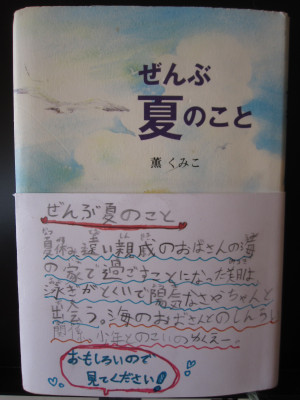 ぜんぶ
夏のこと
薫 くみこ
ぜんぶ夏のこと
夏休み、遠い親戚のおばさんの海
の家で過ごすことになった
泳ぎがとくいで陽気なさやちゃんと
出会う。海のおばさんとのしんらい
関係。少年との
おもしろいので
見てください!